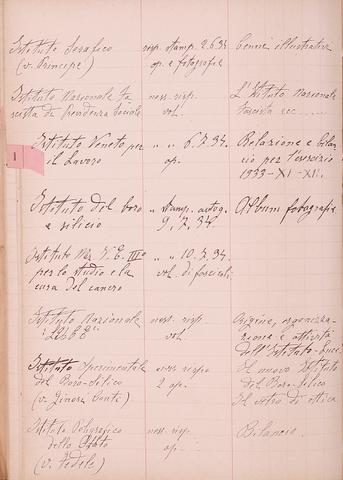 Istituto Serafico risp. stamp. 2.6.34 Cenni illustrativi
(v. Principe) op. e fotografie
Istituto Nazionale Fa- ness. risp. L'Istituto Nazionale
scista di Previdenza Sociale vol. Fascista ecc.....
1
Istituto Veneto per " " 6.7.34. Relazione e bilan-
il Lavoro op. cio per l'esercizio
1933-XI-XII.
Istituto del boro " stamp. autog. Album fotografie
e silicio 9.7.34.
Istituto V. E. III° " " 10.7.34.
per lo studio e la vol. di fascicoli
cura del cancro
Istituto Nazionale ness. risp. Origine, organizza-
"LUCE" vol. zione e attività
dell'Istituto Luce
Istituto Sperimentale risp. Il nuovo Istituto
del Boro-Silicio 2 op. del Boro-Silicio
(v. Ginori Conti) Il vetro di ottica
Istituto Poligrafico ness. risp. Bilancio.
dello Stato op.
(v. Fedele)